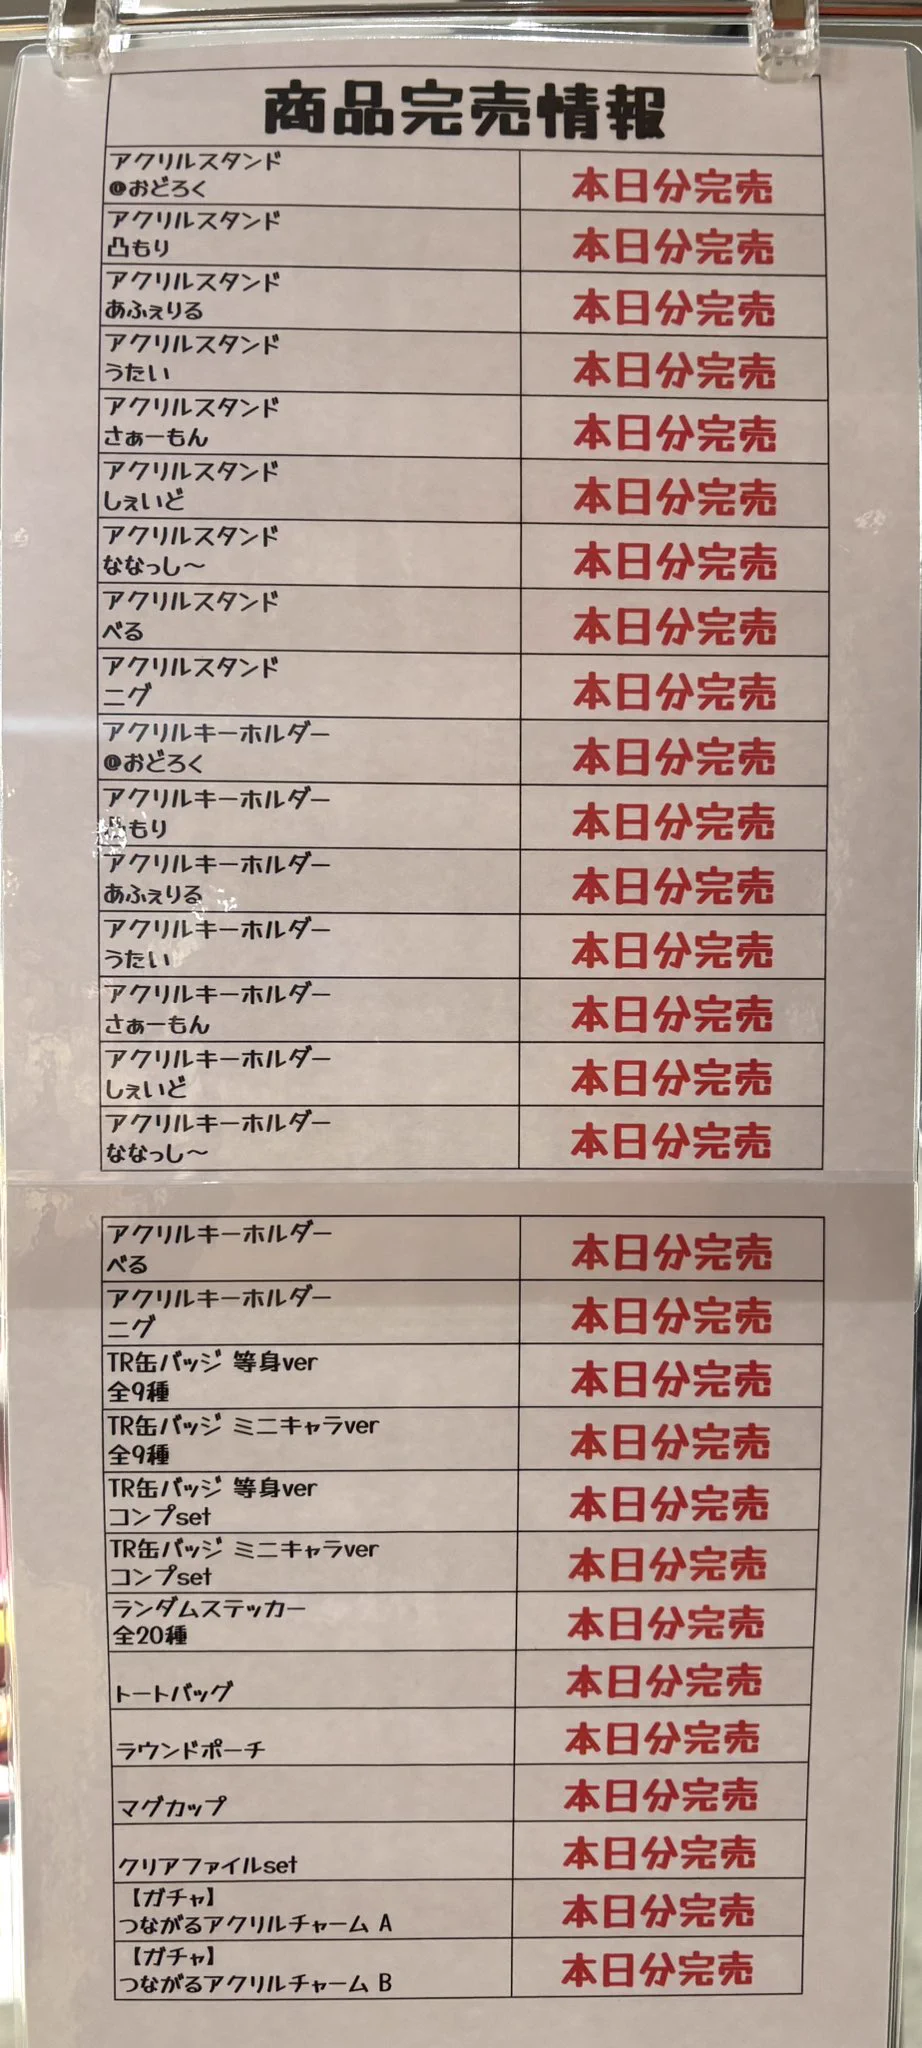 商品完売情報
アクリルスタンド
@おどろく
本日分完売
アクリルスタンド
凸もり
本日分完売
アクリルスタンド
あふぇりる
本日分完売
アクリルスタンド
うたい
本日分完売
アクリルスタンド
さぁーもん
本日分完売
アクリルスタンド
しぇいど
本日分完売
アクリルスタンド
ななっし〜
本日分完売
アクリルスタンド
べる
本日分完売
アクリルスタンド
ニグ
本日分完売
アクリルキーホルダー
@おどろく
本日分完売
アクリルキーホルダー
凸もり
本日分完売
アクリルキーホルダー
あふぇりる
本日分完売
アクリルキーホルダー
うたい
本日分完売
アクリルキーホルダー
さぁーもん
本日分完売
アクリルキーホルダー
しぇいど
本日分完売
アクリルキーホルダー
ななっし〜
本日分完売
アクリルキーホルダー
べる
本日分完売
アクリルキーホルダー
ニグ
本日分完売
TR缶バッジ 等身ver
全9種
本日分完売
TR缶バッジ ミニキャラver
全9種
本日分完売
TR缶バッジ 等身ver
コンプset
本日分完売
TR缶バッジ ミニキャラver
コンプset
本日分完売
ランダムステッカー
全20種
本日分完売
トートバッグ
本日分完売
ラウンドポーチ
本日分完売
マグカップ
本日分完売
クリアファイルset
本日分完売
【ガチャ】
つながるアクリルチャーム A
本日分完売
【ガチャ】
つながるアクリルチャーム B
本日分完売